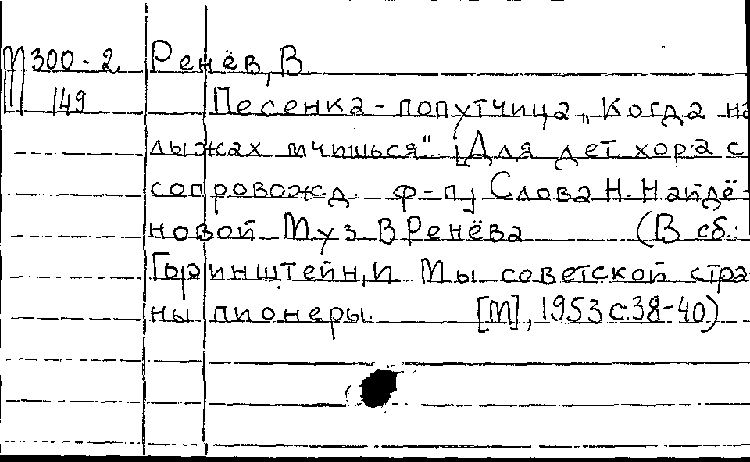 М300-2 Ренёв, В
149 Песенка-попутчица „Когда на
лыжах мчишься" [Для дет хора с
сопровожд. ф-п] Слова Н. Найдё
новой Муз В Ренёва (В сб.:
Гольинштейн, И Мы советской стра
ны пионеры. [М], 1953 с.38-40)